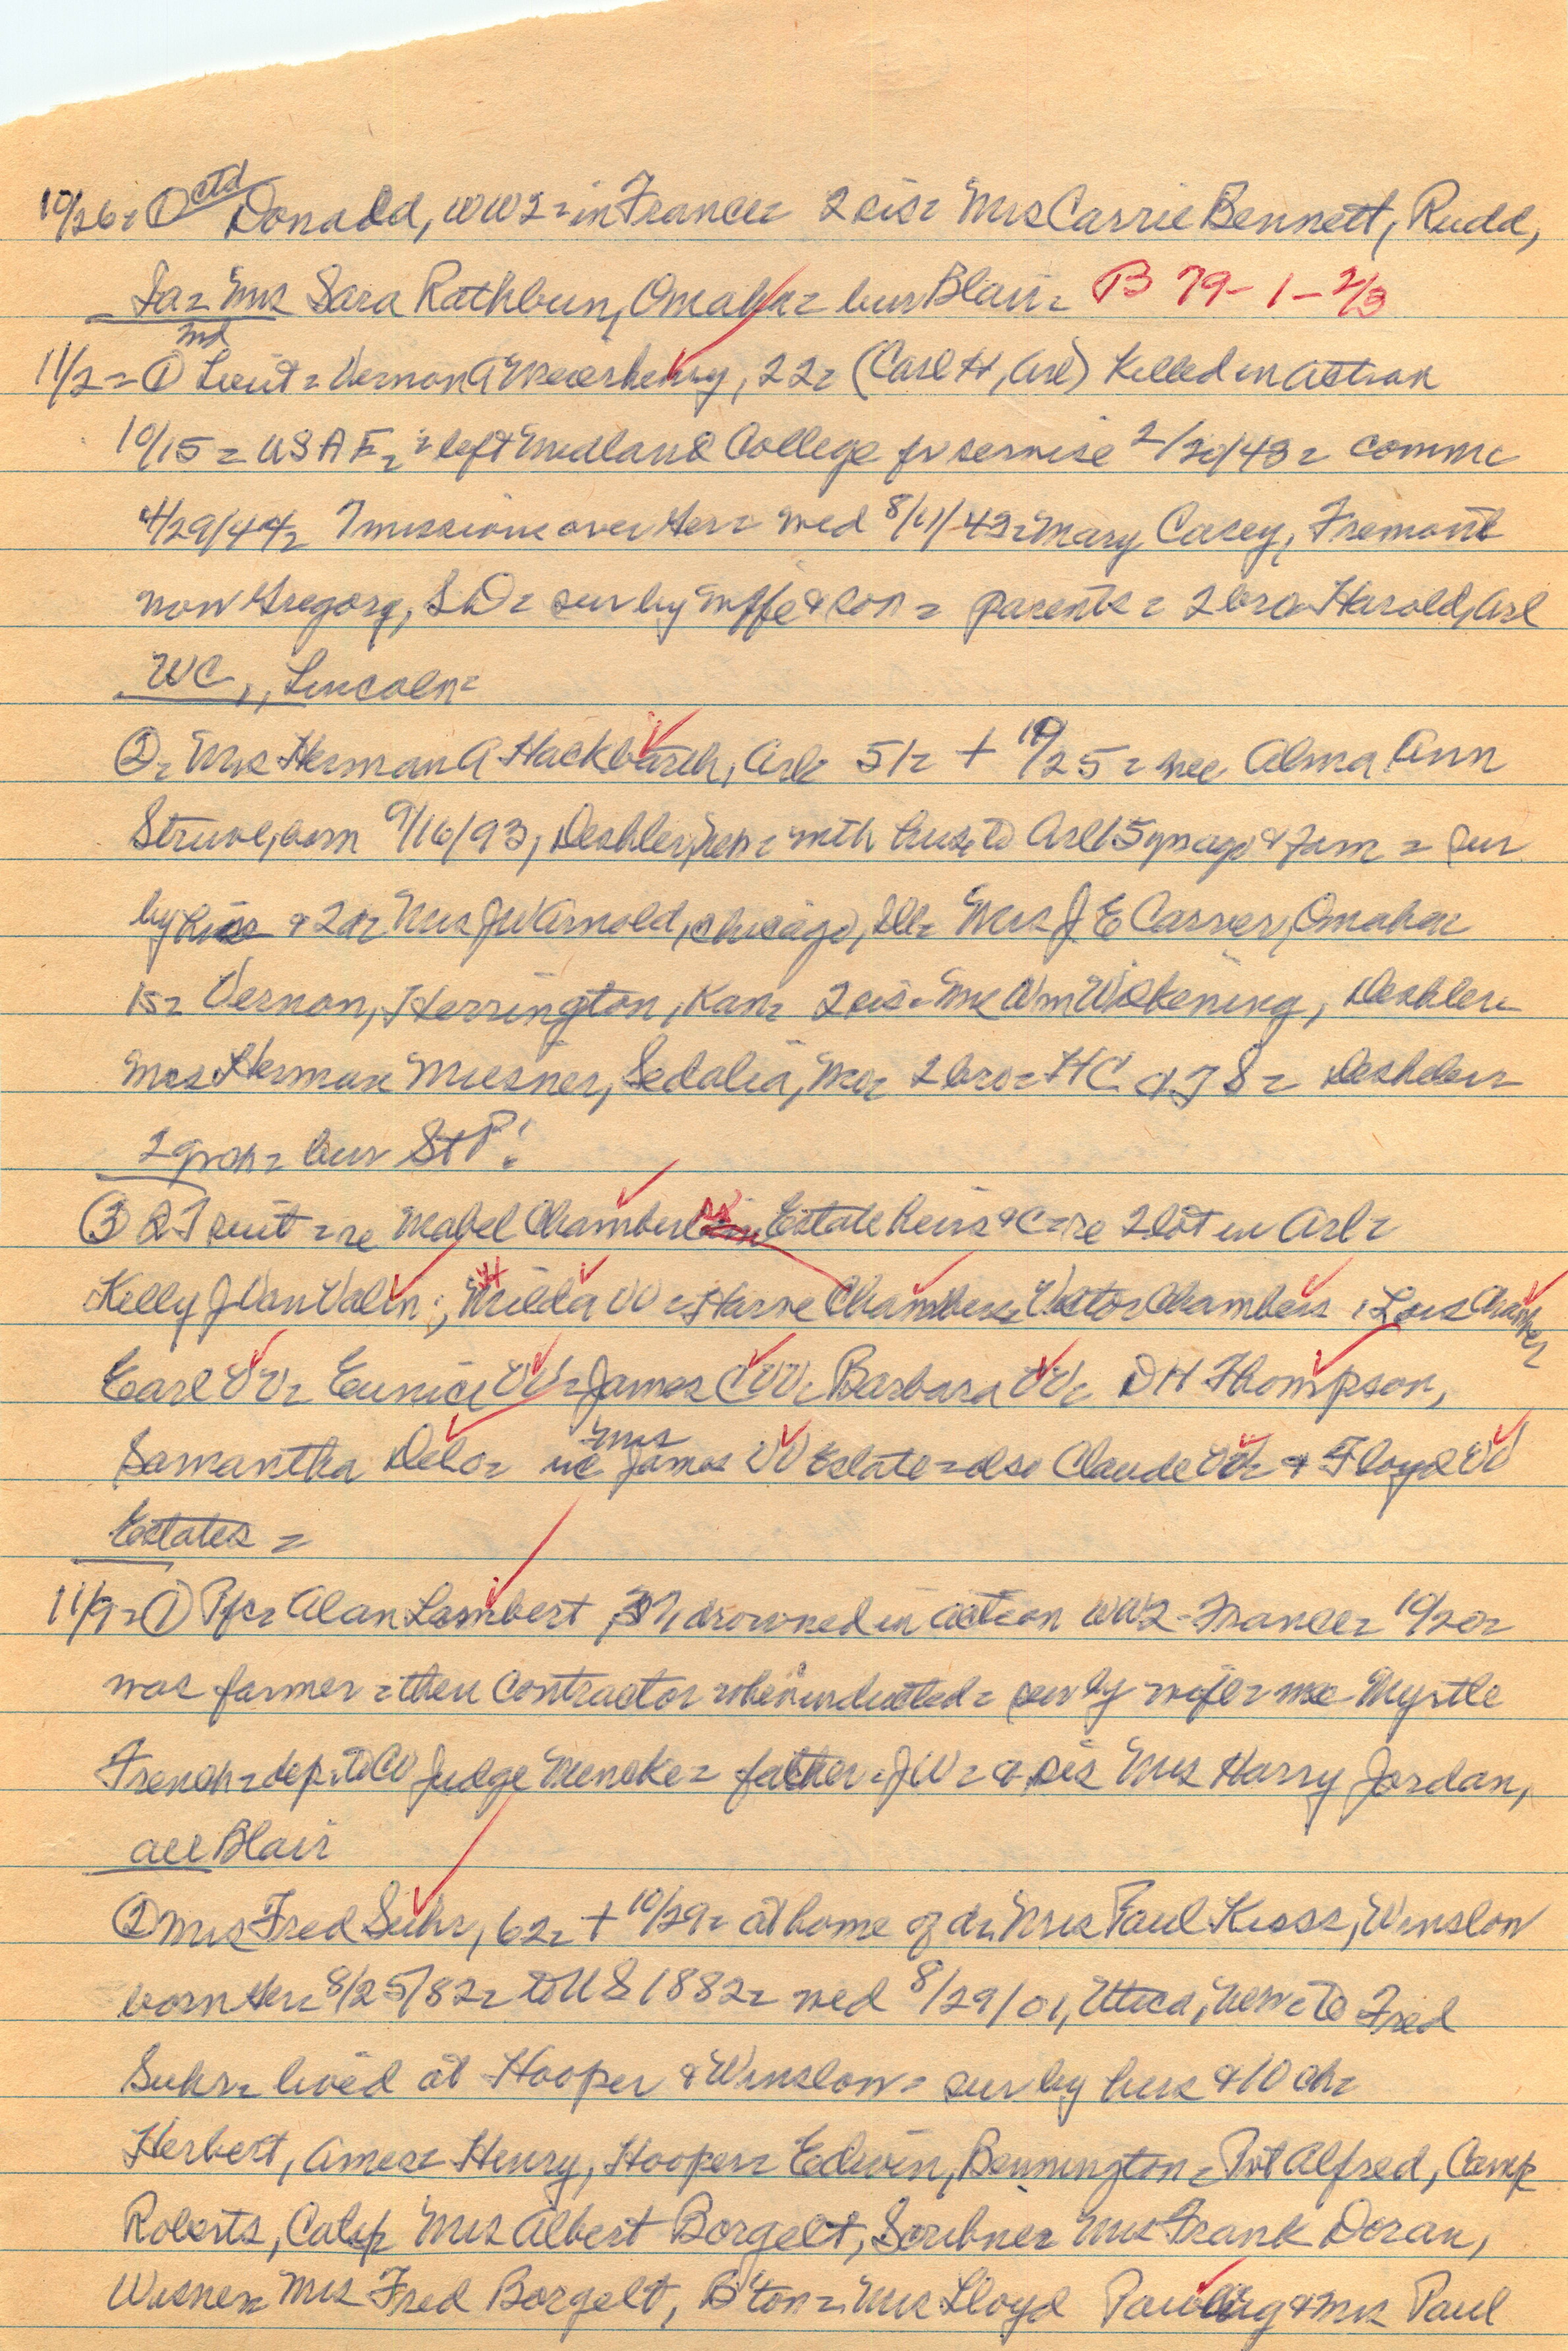 10/26= ① ctd Donald, WW2= in France= 2 sis= Mrs Carrie Bennett, Rudd,
Ia= Mrs Sara Rathbun, Omaha= bur Blair= B 79-1-2/3
11/2= ① 2nd Lieut= Vernon A , 22= (Carl H, Arl) Killed in action
10/15= USAF= left Midland College fr service 2/20/43= comm=
4/29/44= 7 missions over Ger= wed 8/ /43= Mary Casey, Fremont
now Gregory, SD= sur by wife & son= parents= 2 bro Harold, Arl
WC, Lincoln=
②= Mrs Herman A Hackbarth, Arl= 51= + 10/25= nee Alma Ann
Struve, born 9/16/93, Deshler, Neb= with hus to Arl 15 yrs ago & farm= sur
by hus & 2 d= Mrs JW Arnold, Chicago, Ill= Mrs J E Carver, Omaha=
1 s= Vernon, Herrington, Kan= 2 sis= Mrs Wm Wilkening, Deshler=
Mrs Herman Miesner, Sedalia, Mo= 2 bro= HC & J S= Deshler=
2 grch= bur St P!
③ QT suit= re Mabel Chambers Estate heirs &C= re 2 lot in Arl=
Kelly J Van Valin; Hilda VV= Harve Chambers= Victor Chambers, Lois Chambers=
Earl VV= Eunice VV= James C VV= Barbara VV= D H Thompson,
Samantha Delo= Mrs James VV Estate= also Claude VV= & Floyd VV
Estates=
11/9= ① Pfc= Alan Lambert, drowned in action WW2- France= 10/20=
was farmer= then contractor when inducted= sur by wife= nee Myrtle
French= dep. to Co Judge Mencke= father= JW= & sis Mrs Harry Jordan,
all Blair
② Mrs Fred Suhr, 62= + 10/29= at home of d= Mrs Paul Kisss, Winslow
born Ger= 8/25/82= to US 1882= wed 8/29/01, Utica, Neb= to Fred
Suhr= lived at Hooper & Winslow= sur by hus & 10 ch=
Herbert, Ames= Henry, Hooper= Edwin, Bennington= Pvt Alfred, Camp
Roberts, Calif Mrs Albert Borgelt, Scribner= Mrs Frank Doran,
Wisner= Mrs Fred Borgelt, B'ton= Mrs Lloyd & Mrs Paul